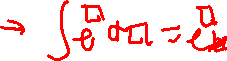 → ∫e^□ d□ = e^□